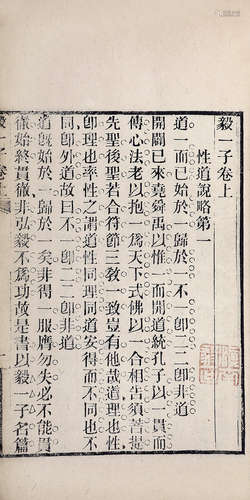 毅一子卷上
性道說略第一
道一而已始於一歸於一不一卽二三卽非道
開闢已來堯舜禹以惟一而開道統孔子以一貫而
傳心法老以抱一爲天下式佛以一合相告須菩提
先聖後聖若合符節三教一致豈有他哉道理也性
卽理也率性之謂道性同理同道安得而不同也不
同卽外道故曰不一卽二三卽非道
道旣始於一歸於一矣非得一服膺勿失必不能貫
徹始終貫徹非弘毅不爲功故是書以毅一子名篇
毅一子卷上